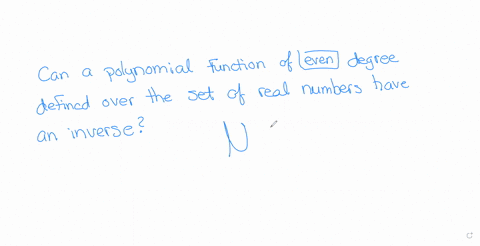 Can a polynomial function of even degree
defined over the set of real numbers have
an inverse?
N